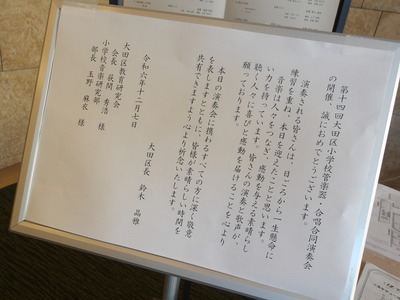 第十四回大田区小学校管楽器・合唱合同演奏会
の開催、誠におめでとうございます。
演奏される皆さんは、日ごろから一生懸命に
練習を重ね、本日を迎えたことと思います。
音楽は人々をつなぎ、感動を与える素晴らし
い力を持っています。皆さんの演奏と歌声が、
聴く人々に喜びと感動を届けることを心より
願っております。
本日の演奏会に携わるすべての方に深く敬意
を表しますとともに、皆様が素晴らしい時間を
共有できますよう心より祈念いたします。
令和六年十二月七日
大田区長 鈴木 晶雅
大田区教育研究会
会長 荻間 秀浩 様
小学校音楽研究部
部長 玉野 麻衣 様